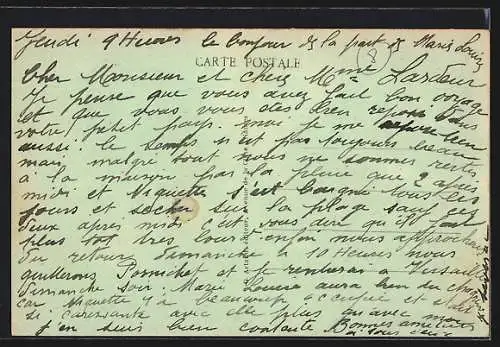 Jeudi 9 Heures le bonjour de la part de Marie Louise
CARTE POSTALE
8
Cher Monsieur et chère Mme Lardeur
Je pense que vous avez fait bon voyage
et que vous vous êtes bien reposé dans
votre petit pays. moi je me repose bien
aussi. le temps n'est pas toujours beau
mais malgré tout nous ne sommes restés
à la maison par la pluie que 2 après
midi et Miquette s'est baignée tous les
jours et sécher sur la plage sauf ces
deux après midi c'est vous dire qu'il fait
plus tôt très lourd enfin nous approchons
du retour dimanche à 10 Heures nous
quitterons Pornichet et je rentrerai à Versailles
dimanche soir. Marie Louise aura bien du chagrin
car Miquette l'a beaucoup occupée et est
si caressante avec elle plus qu'avec moi
j'en suis bien contente Bonnes amitiés
à tous deux